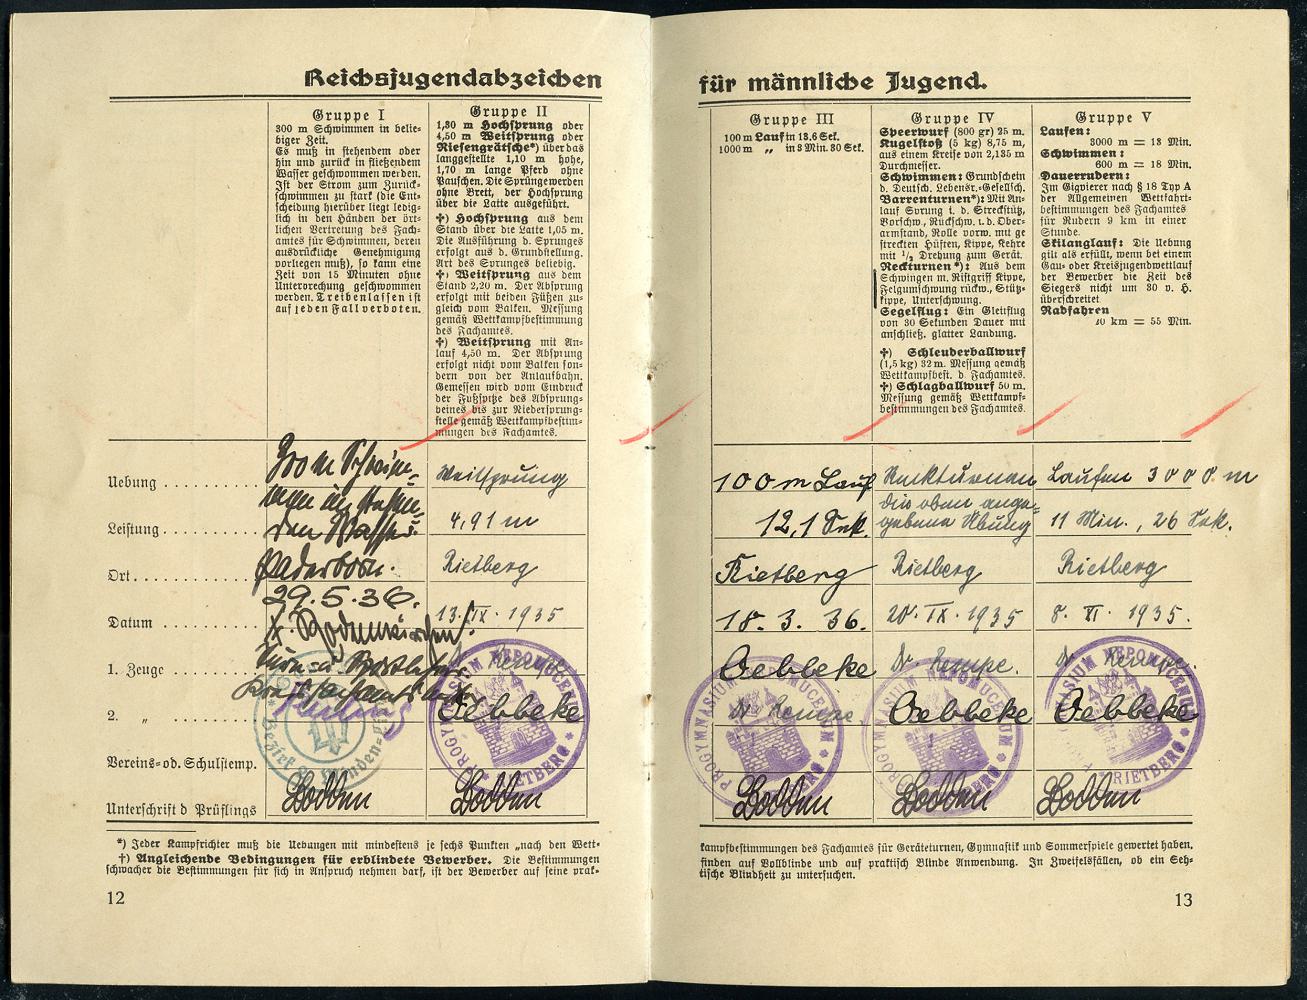 Reichsjugendabzeichen
Gruppe I
300 m Schwimmen in belie-
biger Zeit.
Es muß in stehendem oder
hin und zurück in fließendem
Wasser geschwommen werden.
Ist der Strom zum Zurück-
schwimmen zu stark (die Ent-
scheidung hierüber liegt ledig-
lich in den Händen der ört-
lichen Vertretung des Fach-
amtes für Schwimmen, deren
ausdrückliche Genehmigung
vorliegen muß), so kann eine
Zeit von 15 Minuten ohne
Unterbrechung geschwommen
werden. Treibenlassen ist
auf jeden Fall verboten.
Gruppe II
1,30 m Hochsprung oder
4,50 m Weitsprung oder
Riesengrätsche*) über das
langgestellte 1,10 m hohe,
1,70 m lange Pferd ohne
Pauschen. Die Sprünge werden
ohne Brett, der Hochsprung
über die Latte ausgeführt.
†) Hochsprung aus dem
Stand über die Latte 1,05 m.
Die Ausführung d. Sprunges
erfolgt aus d. Grundstellung.
Art des Sprunges beliebig.
†) Weitsprung aus dem
Stand 2,20 m. Der Absprung
erfolgt mit beiden Füßen zu-
gleich vom Balken. Messung
gemäß Wettkampfbestimmung
des Fachamtes.
†) Weitsprung mit An-
lauf 4,50 m. Der Absprung
erfolgt nicht vom Balken son-
dern von der Anlaufbahn.
Gemessen wird vom Eindruck
der Fußspitze des Absprung-
beines bis zur Niedersprung-
stelle gemäß Wettkampfbestim-
mungen des Fachamtes.
Uebung
300 m Schwim-
men im stehen-
den Wasser
Weitsprung
Leistung
4,91 m
Ort
Paderborn.
Rietberg
Datum
29.5.36.
13. IX. 1935
1. Zeuge
Kempe
2. „
Oebbeke
Vereins- od. Schulstemp.
PROGYMNASIUM NEPOMUCENUM
* RIETBERG *
Unterschrift d Prüflings
Bodden
Bodden
*) Jeder Kampfrichter muß die Uebungen mit mindestens je sechs Punkten „nach den Wett-
†) Angleichende Bedingungen für erblindete Bewerber. Die Bestimmungen
schwacher die Bestimmungen für sich in Anspruch nehmen darf, ist der Bewerber auf seine prak-
12
für männliche Jugend.
Gruppe III
100 m Lauf in 13.6 Sek.
1000 m „ in 3 Min. 30 Sek.
Gruppe IV
Speerwurf (800 gr) 25 m.
Kugelstoß (5 kg) 8,75 m,
aus einem Kreise von 2,135 m
Durchmesser.
Schwimmen: Grundschein
d. Deutsch. Lebensr.-Gesellsch.
Barrenturnen*): Mit An-
lauf Sprung i. d. Streckstütz,
Vorschw., Rückschw. i. d. Ober-
armstand, Rolle vorw. mit ge
streckten Hüften, Kippe, Kehre
mit 1/2 Drehung zum Gerät.
Reckturnen*): Aus dem
Schwingen m. Ristgriff Kippe,
Felgumschwung rückw., Stütz-
kippe, Unterschwung.
Segelflug: Ein Gleitflug
von 30 Sekunden Dauer mit
anschließ. glatter Landung.
†) Schleuderballwurf
(1,5 kg) 32 m. Messung gemäß
Wettkampfbest. d Fachamtes.
†) Schlagballwurf 50 m.
Messung gemäß Wettkampf-
bestimmungen des Fachamtes.
Gruppe V
Laufen:
3000 m = 13 Min.
Schwimmen:
600 m = 18 Min.
Dauerrudern:
Im Gigvierer nach § 18 Typ A
der Allgemeinen Wettfahrt-
bestimmungen des Fachamtes
für Rudern 9 km in einer
Stunde.
Skilanglauf: Die Uebung
gilt als erfüllt, wenn bei einem
Gau- oder Kreisjugendwettlauf
der Bewerber die Zeit des
Siegers nicht um 30 v. H.
überschreitet
Radfahren
20 km = 55 Min.
100 m Lauf
Reckturnen
Laufen 3000 m
12,1 Sek.
die oben ange-
gebene Übung
11 Min., 26 Sek.
Rietberg
Rietberg
Rietberg
18. 3. 36.
20. IX. 1935
8. XI. 1935
Oebbeke
Dr Kempe.
Dr Kempe.
Dr Kempe
Oebbeke
Oebbeke
PROGYMNASIUM NEPOMUCENUM
* RIETBERG *
PROGYMNASIUM NEPOMUCENUM
* RIETBERG *
PROGYMNASIUM NEPOMUCENUM
* RIETBERG *
Bodden
Bodden
Bodden
kampfbestimmungen des Fachamtes für Geräteturnen, Gymnastik und Sommerspiele gewertet haben.
finden auf Vollblinde und auf praktisch Blinde Anwendung. In Zweifelsfällen, ob ein Seh-
tische Blindheit zu untersuchen.
13